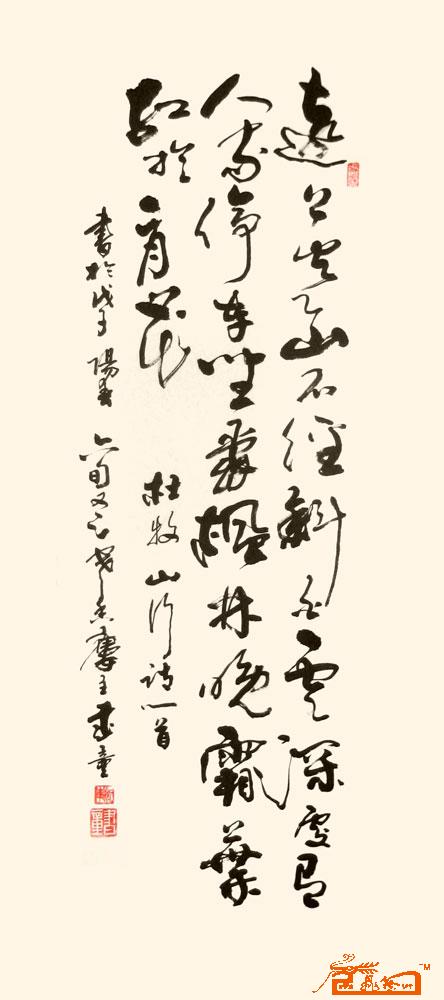 遠上寒山石徑斜白雲深處有
人家停車坐愛楓林晚霜葉
紅於二月花
杜牧山行詩一首
書於戊子陽春 六旬又